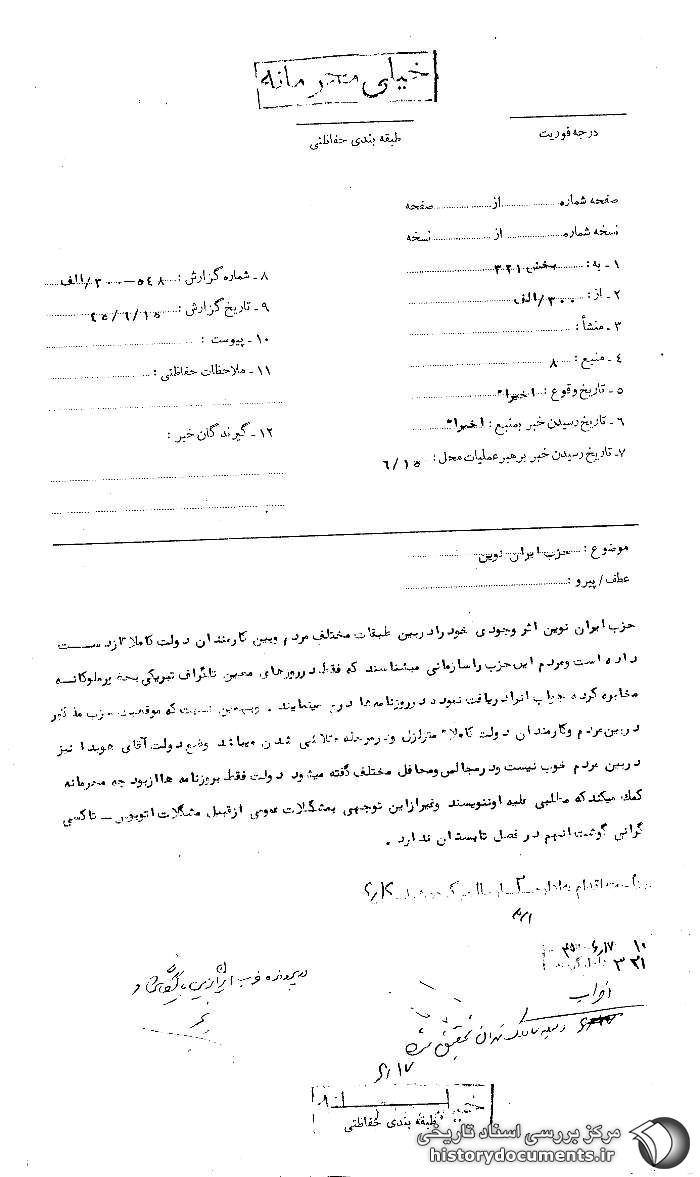 خیلی محرمانه
طبقه بندی حفاظتی
درجه فوریت
صفحه شماره ................ از ................ صفحه
نسخه شماره ................ از ................ نسخه
۱ـ به : بخش ۳۲۱
۲ـ از : ۳۰۰/الف
۳ـ منشأ :
۴ـ منبع : ۸
۵ـ تاریخ وقوع : اخیرا"
۶ـ تاریخ رسیدن خبر بمنبع : اخیرا"
۷ـ تاریخ رسیدن خبر برهبر عملیات محل : ۶/۱۵
۸ـ شماره گزارش : ۵۴۸ـ۳۰۰/الف
۹ـ تاریخ گزارش : ۴۵/۶/۱۵
۱۰ـ پیوست :
۱۱ـ ملاحظات حفاظتی :
۱۲ـ گیرندگان خبر :
موضوع : حزب ایران نوین
عطف/پیرو :
حزب ایران نوین اثر وجودی خود را در بین طبقات مختلف مردم و بین کارمندان دولت کاملا" از دست
داده است و مردم این حزب را سازمانی میشناسند که فقط در روزهای معین تلگراف تبریکی بحضور ملوکانه
مخابره کرده جواب آنرا دریافت نموده در روزنامه ها درج مینمایند . وبهمین نسبت که موقعیت حزب مذکور
در بین مردم و کارمندان دولت کاملا" متزلزل و در مرحله متلاشی شدن میباشد وضع دولت آقای هویدا نیز
در بین مردم خوب نیست و در مجالس و محافل مختلف گفته میشود دولت فقط بروزنامه ها از بودجه محرمانه
کمک میکند که مطلبی علیه او ننویسند و غیر از این توجهی بمشکلات عمومی از قبیل مشکلات اتوبوس ـ تاکسی
گرانی گوشت آنهم در فصل تابستان ندارد .
اقدام
۱۰ ۶/۱۷
۳۲۱
در پرونده حزب ایران نوین بایگانی شود
تحقیق شود
۶/۱۷
طبقه بندی حفاظتی
مرکز بررسی اسناد تاریخی
historydocuments.ir